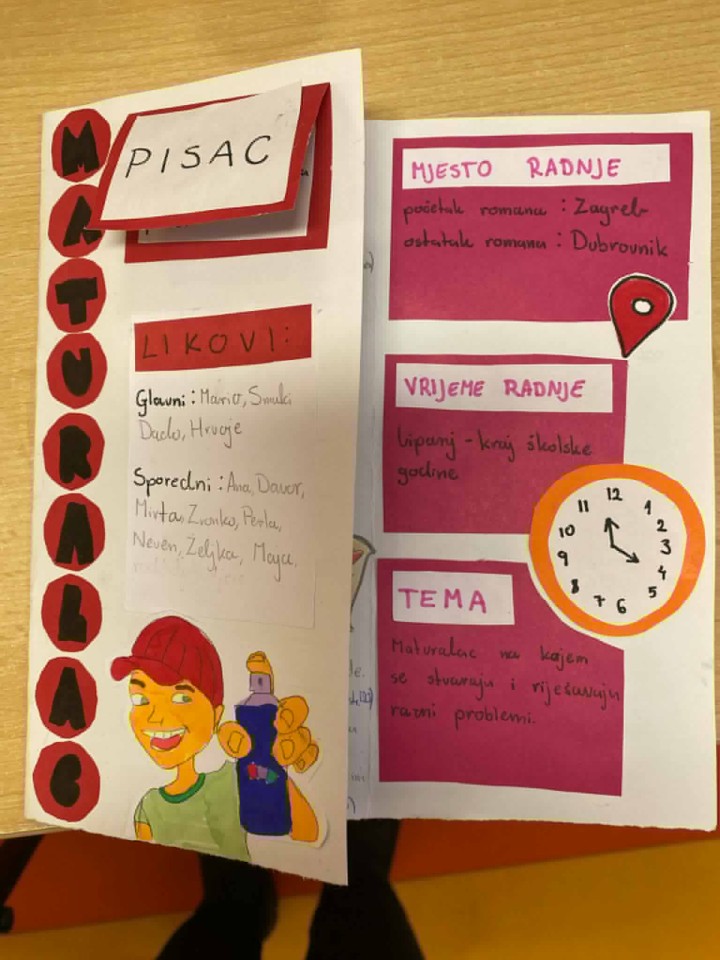 MATURALAC
PISAC
LIKOVI:
Glavni: Mario, Smuki
Dado, Hrvoje
Sporedni: Ana, Davor,
Mirta, Zvonko, Perla,
Neven, Željka, Maja,
MJESTO RADNJE
početak romana : Zagreb
ostatak romana : Dubrovnik
VRIJEME RADNJE
lipanj - kraj školske
godine
12
1
2
3
4
5
6
7
8
9
10
11
TEMA
Maturalac na kojem
se stvaraju i riješavaju
razni problemi.